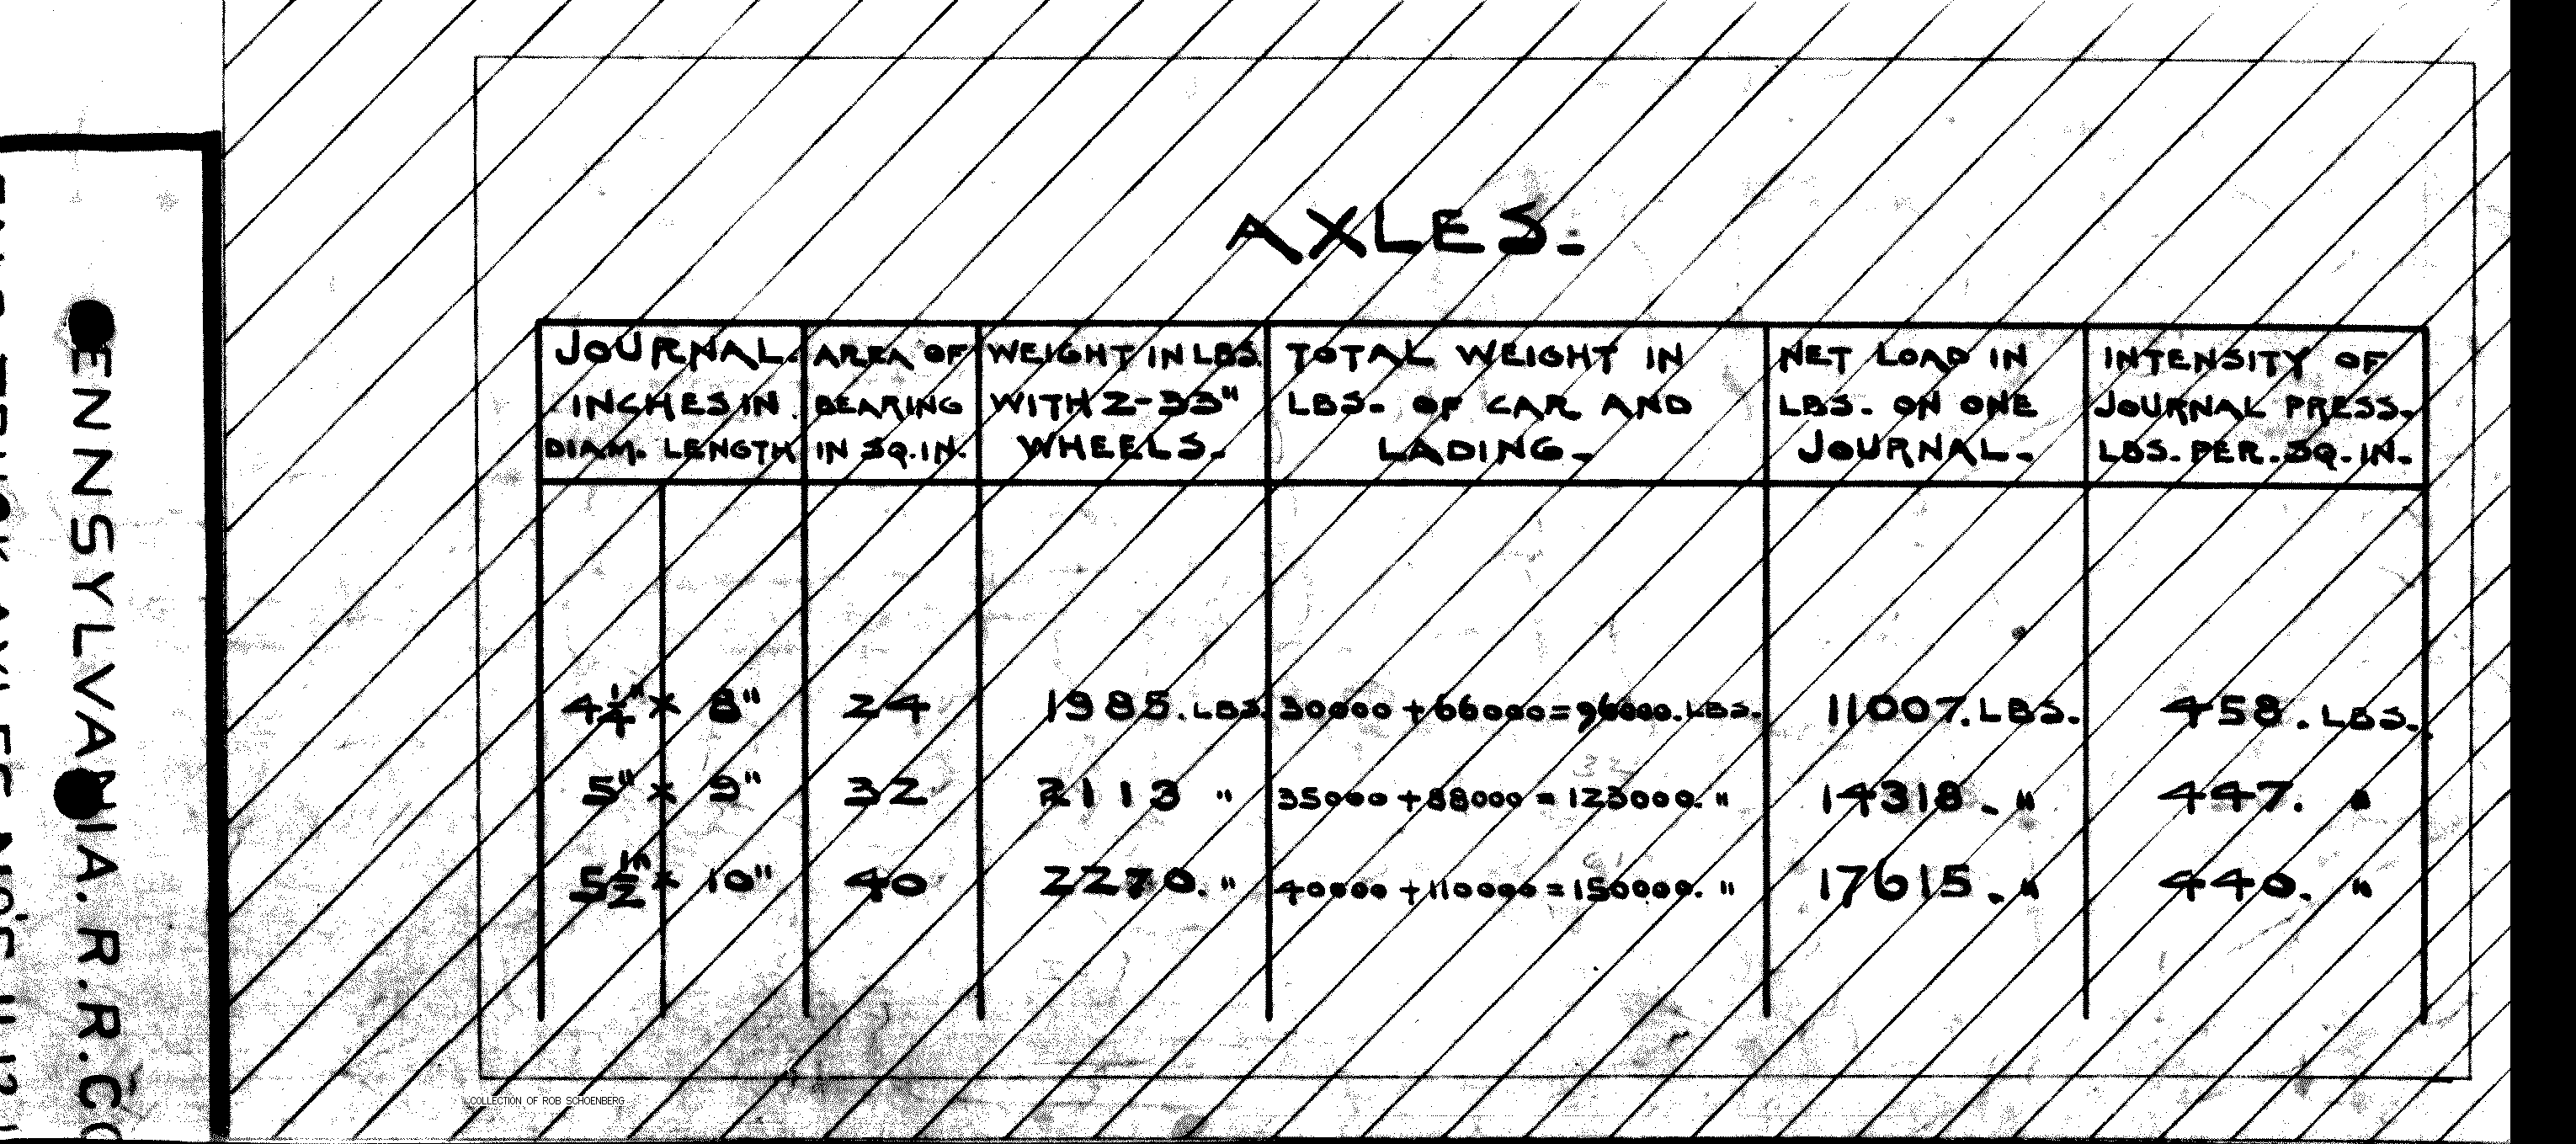 AXLES.
JOURNAL. AREA OF WEIGHT IN LBS. TOTAL WEIGHT IN NET LOAD IN INTENSITY OF
INCHES IN BEARING WITH 2-33" LBS. OF CAR AND LBS. ON ONE JOURNAL PRESS.
DIAM. LENGTH IN SQ. IN. WHEELS. LADING. JOURNAL. LBS. PER. SQ. IN.
4 1/4" × 8" 24 1985. LBS. 30000 + 66000 = 96000. LBS. 11007. LBS. 458. LBS.
5" × 9" 32 2113 " 35000 + 88000 = 123000. " 14318. " 447. "
5 1/2" × 10" 40 2270. " 40000 + 110000 = 150000. " 17615. " 440. "
PENNSYLVANIA. R.R. CO
COLLECTION OF ROB SCHOENBERG